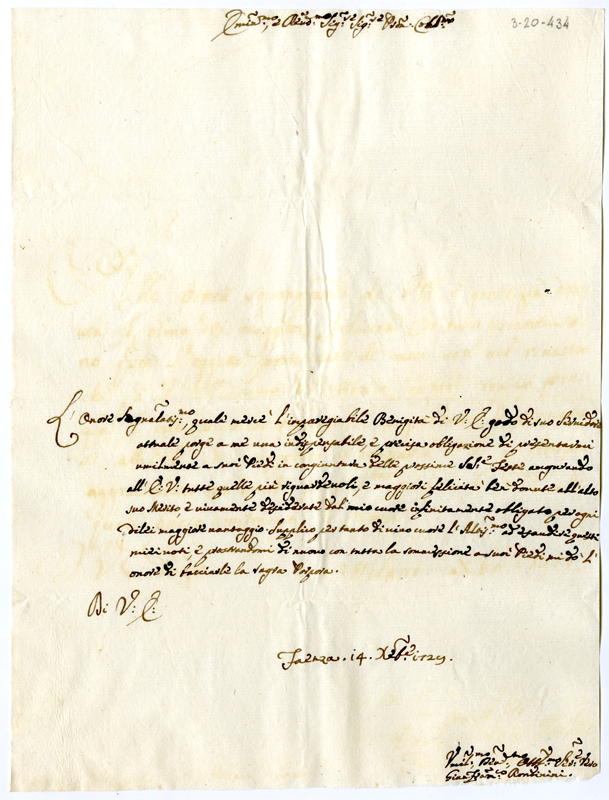 Emin.mo, e Rev.mo Sig.r Sig.r Pron. Colmo
3-20-434
L'Onore Segnalatiss.mo, quale mercè l'impareggiabile Benignità di V: E: godo di suo Servidore
attuale porge a me una indispensabile, e precisa obligazione di presentarmi
umilmente a suoi Piedi in congiuntura delle prossime Sante Feste augurando
all'E: V: tutte quelle più riguardevoli, e maggiori felicità ben dovute all'alto
suo Merito, e vivamente desiderate dal mio cuore infinitamente obligato per ogni
di lei maggiore vantaggio. Supplico pertanto di vivo cuore l'Altiss.mo ad esaudire questi
miei voti, e prostrandomi di nuovo con tutta la sommissione a suoi Piedi mi dò l'
onore di bacciarle la sagra Porpora.
Di V: E:
Faenza. 14. Xbre. 1729.
Umil.mo Dev.mo Oss.mo Ser.re
Gio: Fran.co Rondinini.